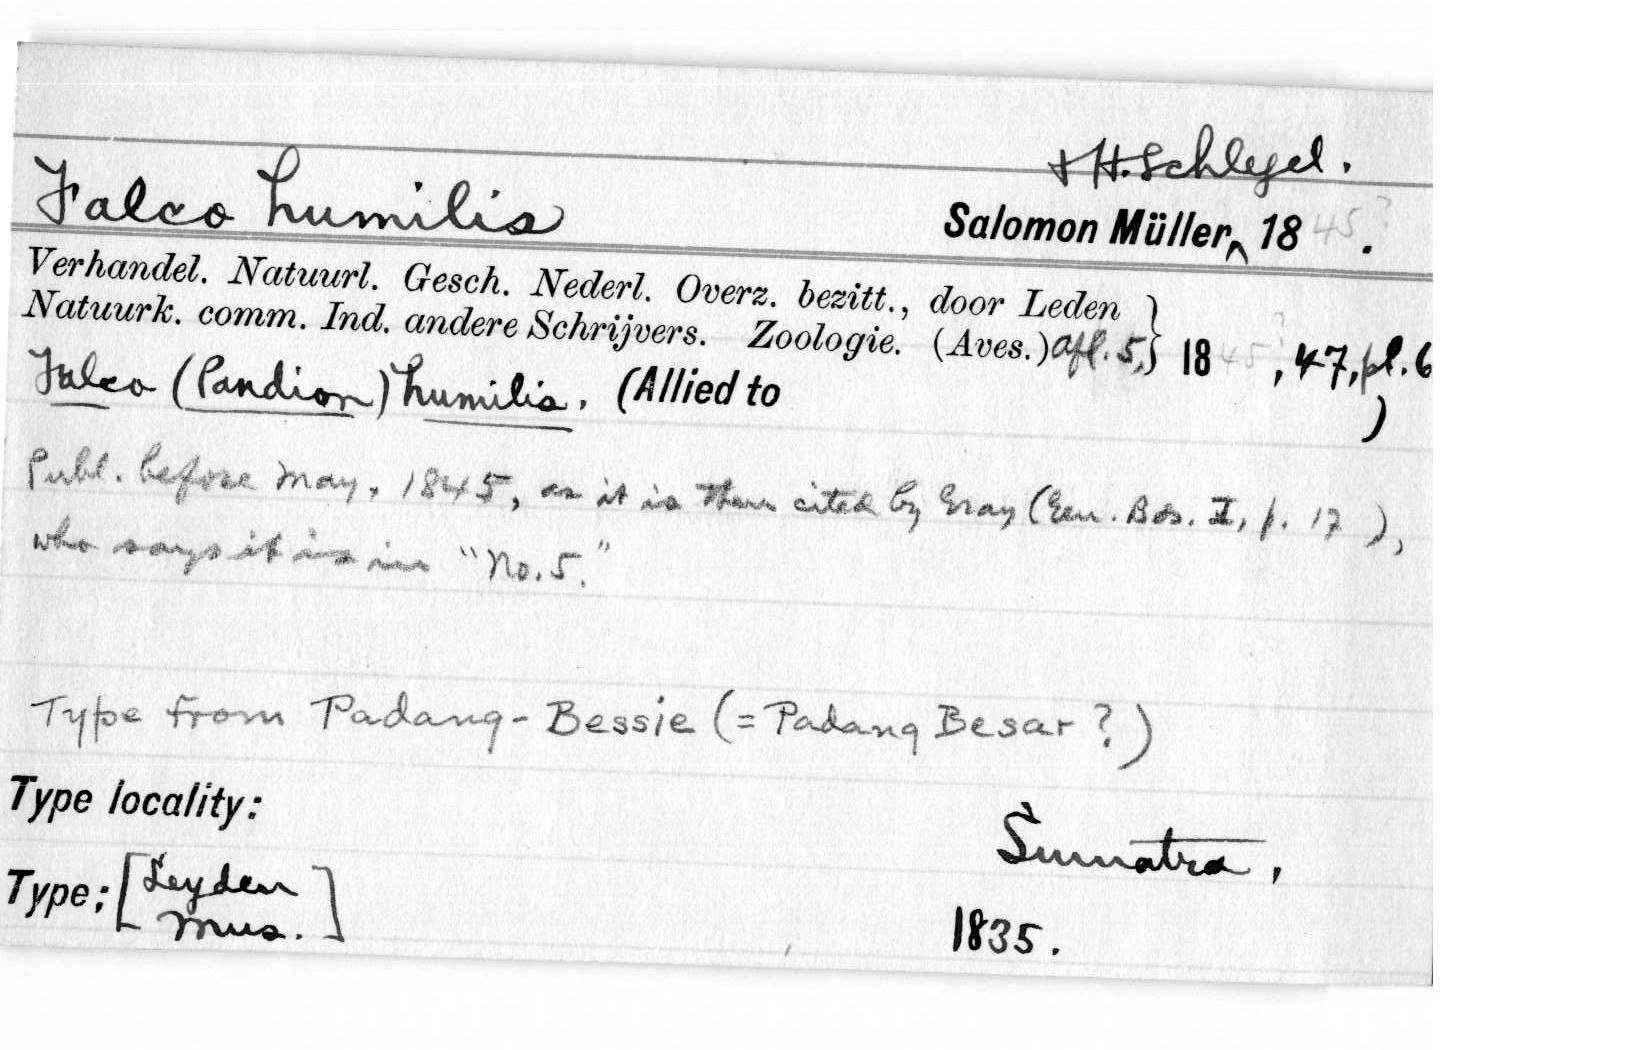 & H. Schlegel.
Falco humilis Salomon Müller, ^ 1845?.
Verhandel. Natuurl. Gesch. Nederl. Overz. bezitt., door Leden
Natuurk. comm. Ind. andere Schrijvers. Zoologie. (Aves.) afl. 5,} 1845?, 47, pl. 6
Falco (Pandion) humilis. (Allied to
)
Publ. before May, 1845, as it is then cited by Gray (Gen. Bds. I, p. 17),
who says it is in "No. 5."
Type from Padang-Bessie (= Padang Besar?)
Type locality:
Sumatra,
Type; [Leyden
Mus.] 1835.